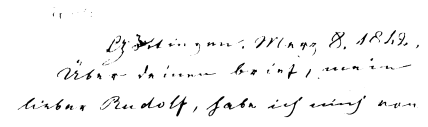 Göttingen. Merz 8. 1842.
Über deinen brief, mein
lieber Rudolf, habe ich mich von